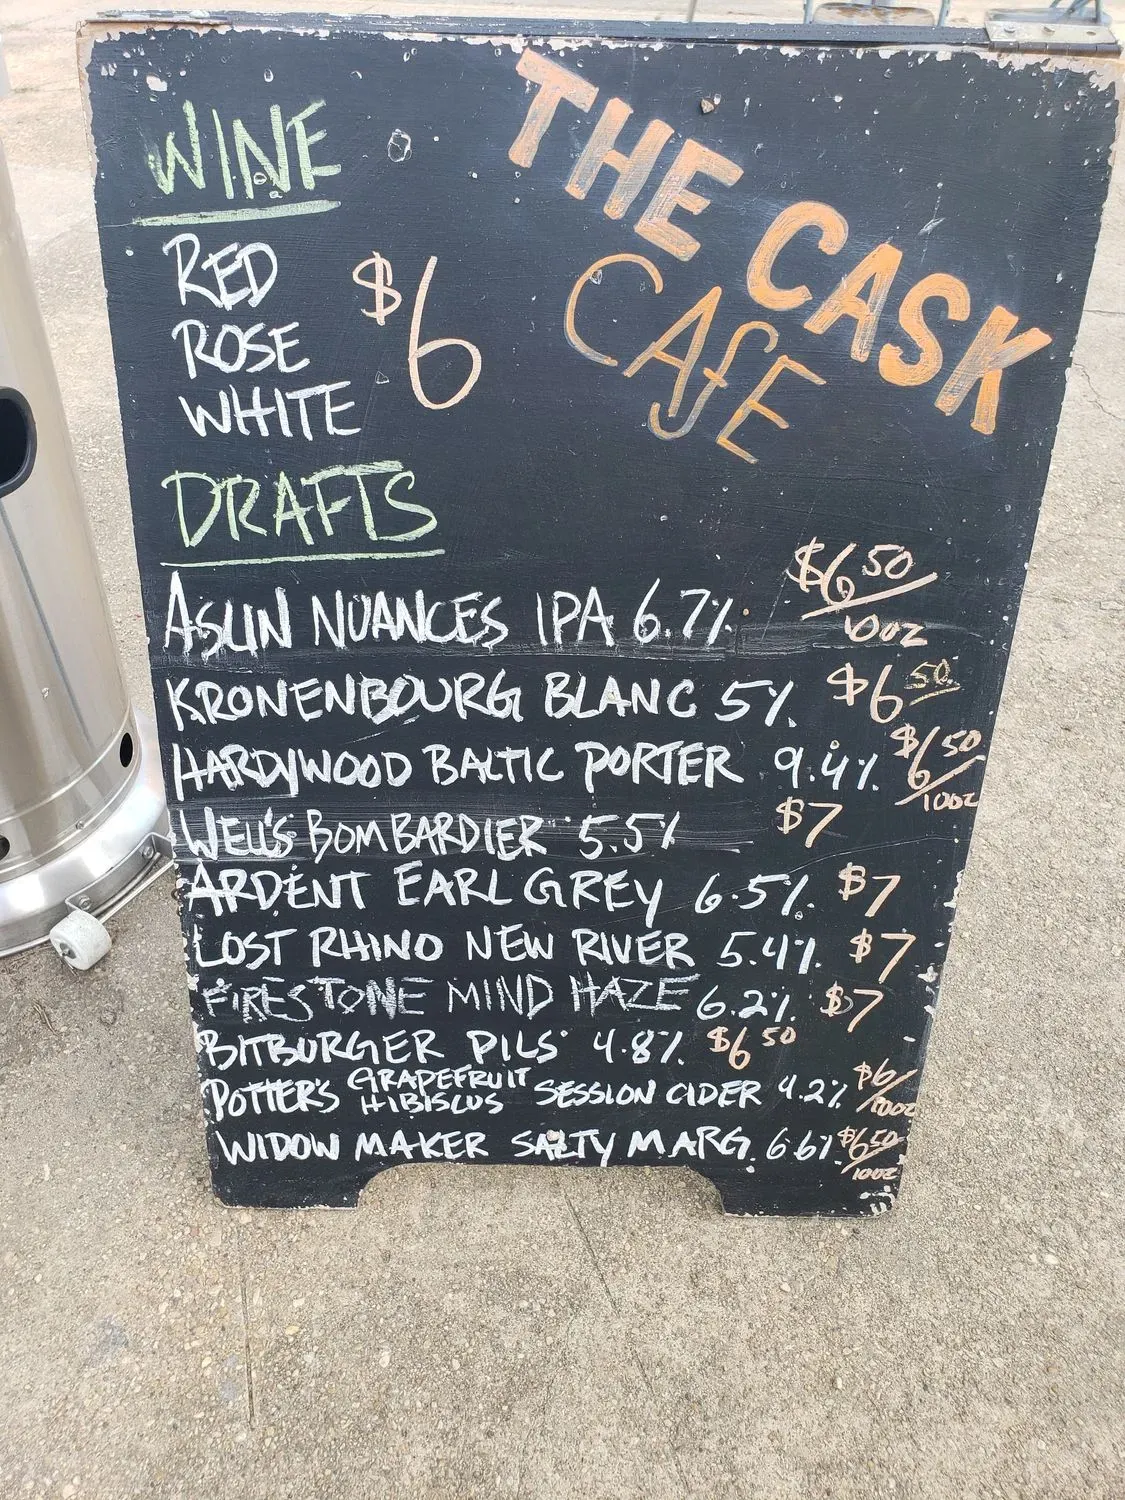 THE CASK
CAFE
WINE
RED
ROSE
WHITE
$6
DRAFTS
ASLIN NUANCES IPA 6.7% $6 50/10oz
KRONENBOURG BLANC 5% $6 50
HARDYWOOD BALTIC PORTER 9.4% $6 50/10oz
WELL'S BOMBARDIER 5.5% $7
ARDENT EARL GREY 6.5% $7
LOST RHINO NEW RIVER 5.4% $7
FIRESTONE MIND HAZE 6.2% $7
BITBURGER PILS 4.8% $6 50
POTTER'S GRAPEFRUIT HIBISCUS SESSION CIDER 4.2% $6/10oz
WIDOW MAKER SALTY MARG. 6.6% $6 50/10oz